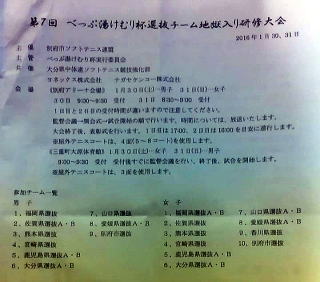 第7回 べっぷ湯けむり杯選抜チーム地獄入り研修大会
2016年1月30、31日
主 催 別府市ソフトテニス連盟
主 管 べっぷ湯けむり杯実行委員会
共 催 大分県中体連ソフトテニス競技強化部
ヨネックス株式会社 ナガセケンコー株式会社
会 場 《別府アリーナ会場》 1月30日(土)…男子 31日(日)…女子
30日 9:30~9:50 受付 31日 9:00~9:20 受付
1日目と2日目の受付時間が違いますので注意してください。
監督会議→開会式→試合開始の順で行います。時間については、放送いたします。
大会終了後、表彰式を行います。1日目は17:00、2日目は16:00を目安に進行します。
※屋外テニスコートは、4面(5~8コート)を使用します。
《三重町大原体育館》 1月30日(土)…女子 31日(日)…男子
9:00~9:30 受付 受付後すぐに監督会議を行い、終了後、試合を開始します。
※屋外テニスコートは、3面を使用します。
参加チーム一覧
男 子 女 子
1、福岡県選抜 7、山口県選抜A・B 1、福岡県選抜A・B 7、山口県選抜A・B
2、佐賀県選抜A・B 8、香川県選抜 2、佐賀県選抜A・B 9、香川県選抜
3、熊本県選抜 9、別府市選抜 3、熊本県選抜 10、別府市選抜
4、宮崎県選抜 4、宮崎県選抜
5、鹿児島県選抜A・B 5、鹿児島県選抜A・B
6、大分県選抜A・B 6、大分県選抜A・B